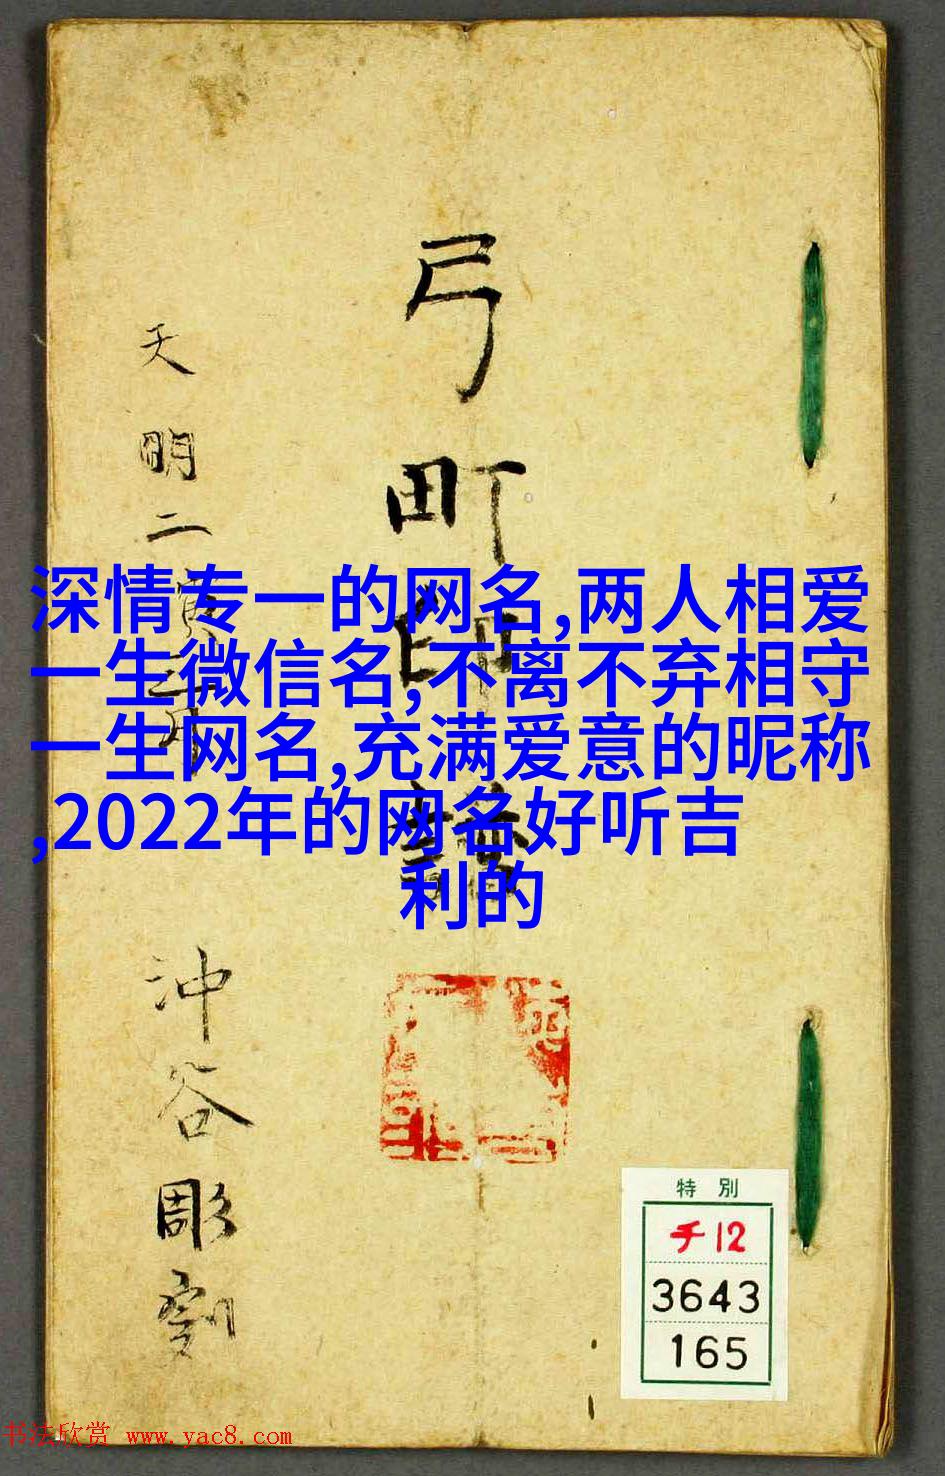 弓町印譜
天明二寅三月
沖谷彫刻
深情专一的网名,两人相爱
一生微信名,不离不弃相守
一生网名,充满爱意的昵称
,2022年的网名好听吉
利的
特別
チ12
3643
165
书法欣赏 www.yac8.com